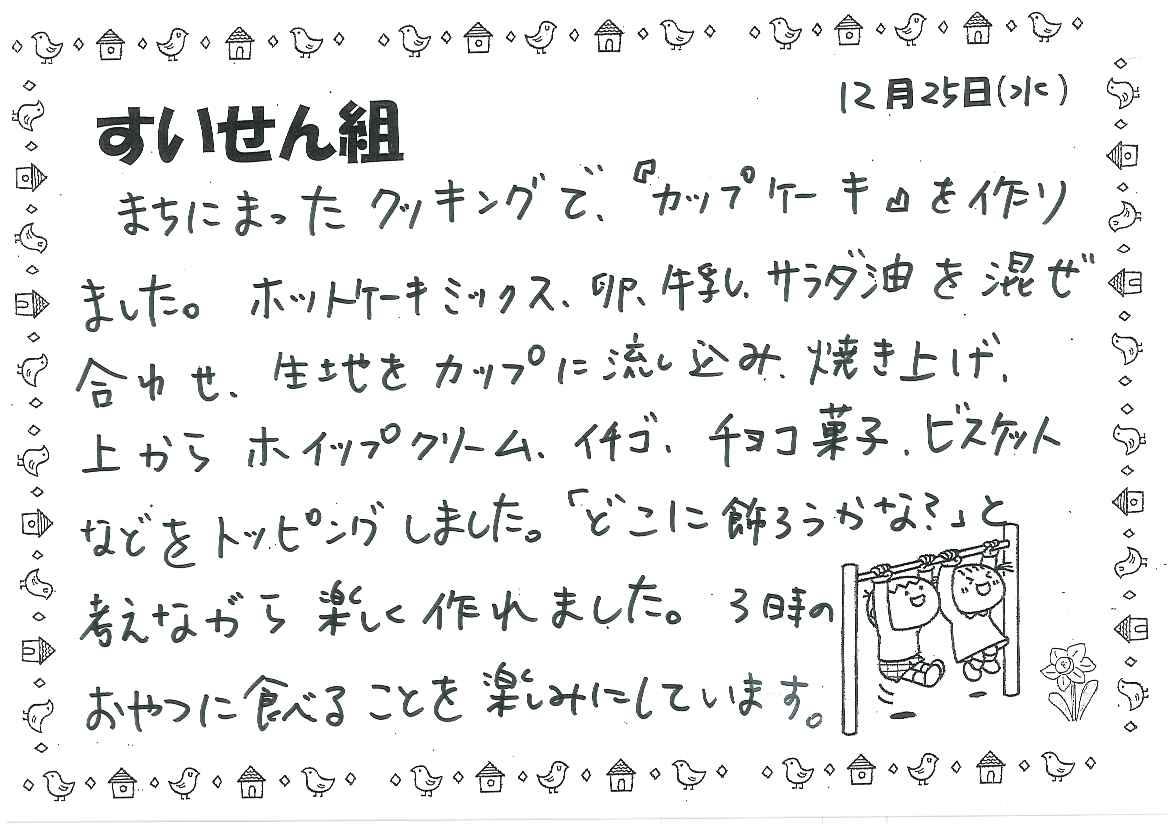 12月25日(水)
すいせん組
まちにまったクッキングで、『カップケーキ』を作り
ました。ホットケーキミックス、卵、牛乳、サラダ油を混ぜ
合わせ、生地をカップに流し込み、焼き上げ、
上からホイップクリーム、イチゴ、チョコ菓子、ビスケット
などをトッピングしました。「どこに飾ろうかな?」と
考えながら楽しく作れました。3時の
おやつに食べることを楽しみにしています。